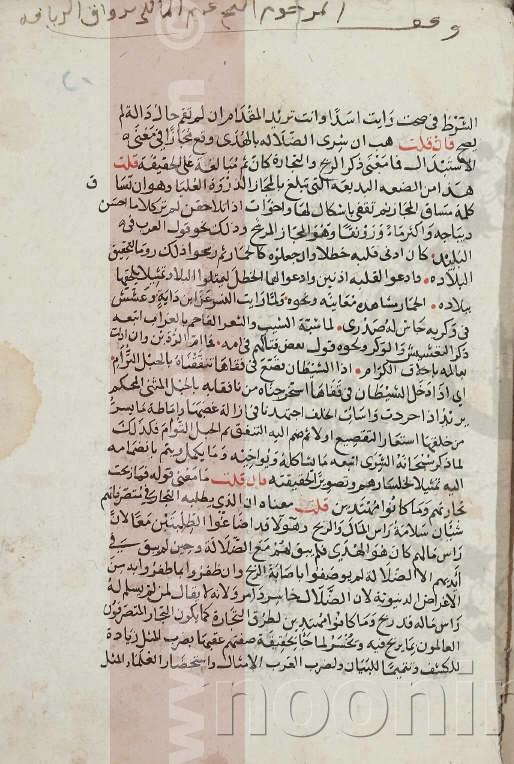 وقف المرحوم الشيخ برواق
الشرط في صحت رايت اسدا وانت تريد المقدام ان لم تقم حال دالة لم
يصح فان قلت هب ان شرى الضلالة بالهدى وقع مجازا في معنى
الاستبدال فما معنى ذكر الربح والتجارة كان ثم مبايعة على الحقيقة قلت
هذا من الصنعة البديعة التي تبلغ بالمجاز الذروة العليا وهو ان تساق
كلمة مساق المجاز ثم تقفى باشكال لها واخوات اذا تلاحقن لم تر كلاما احسن
ديباجة واكثر ماء ورونقا وهو المجاز المرشح وذلك نحو قول العرب في
البليد كان اذني قلبه خطلا وان جعلوه كالحمار ثم رشحوا ذلك روما لتحقيق
البلادة فادعوا لقلبه اذنين وادعوا لهما الخطل ليمثلوا البلادة تمثيلا يلحقها
ببلادة الحمار مشاهدة معاينة ونحوه ولما رايت النسر عز ابن داية وعشش
في وكريه جاش له صدري لما شبه الشيب بالنسر والشعر الفاحم بالغراب اتبعه
ذكر التعشيش والوكر ونحوه قول بعض فتاكهم في امه فما ام الردين وان ادلت
بعالمة باخلاق الكرام اذا الشيطان قصع في قفاها تنفقناه بالحبل التوام
اي اذا دخل الشيطان في قفاها استخرجناه من نافقائه بالحبل المثنى المحكم
يريد اذا حردت واساءت الخلق اجتهدنا في ازالة غضبها واماطة ما يسوء
من خلقها استعار التقصيع اولا ثم ضم اليه التنفق ثم الحبل التوام فكذلك
لما ذكر سبحانه الشرى اتبعه ما يشاكله ويواخيه وما يكمل ويتم بانضمامه
اليه تمثيلا لخسارهم وتصويرا لحقيقته فان قلت ما معنى قوله فما ربحت
تجارتهم وما كانوا مهتدين قلت معناه ان الذي يطلبه التجار في متصرفاتهم
شيئان سلامة راس المال والربح وهولا قد اضاعوا الطلبتين معا لان
راس مالهم كان هو الهدى فلم يبق لهم مع الضلالة وحين لم يبق في
ايديهم الا الضلالة لم يوصفوا باصابة الربح وان ظفروا بما ظفروا به من
الاغراض الدنيوية لان الضلال خاسر دامر ولانه لا يقال لمن لم يسلم له
راس ماله قد ربح وما كانوا مهتدين لطرق التجارة كما يكون التجار المتصرفون
العالمون بما يربح فيه ويخسر لما جا بحقيقة صفتهم عقبها بضرب المثل زيادة
للكشف وتتميما للبيان ولضرب العرب الامثال واستحضار العلما المثل
noonin
www
©